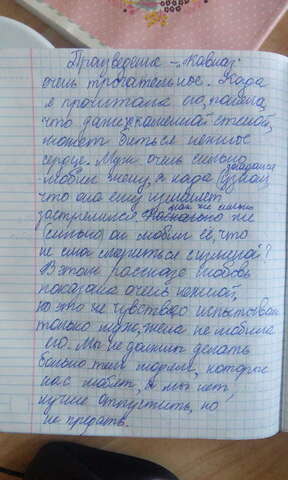 Произведение - "Кавказ"
очень трогательное. Когда
я прочитала его, поняла,
что даже за каменной стеной,
может биться нежное
сердце. Муж очень сильно
любил жену, и када догадался
узнал
что она ему изменяет
застрелился. Насколько же
так же сильно
(сильно) он любил её, что
не смог смириться с изменой?
В этом рассказе любовь
показана очень нежной,
но это же чувство испытывал
только муж, жена не любила
его. Мы не должны делать
больно тем людям, которые
нас любят, а мы нет
лучше отпустить, но
не предать.